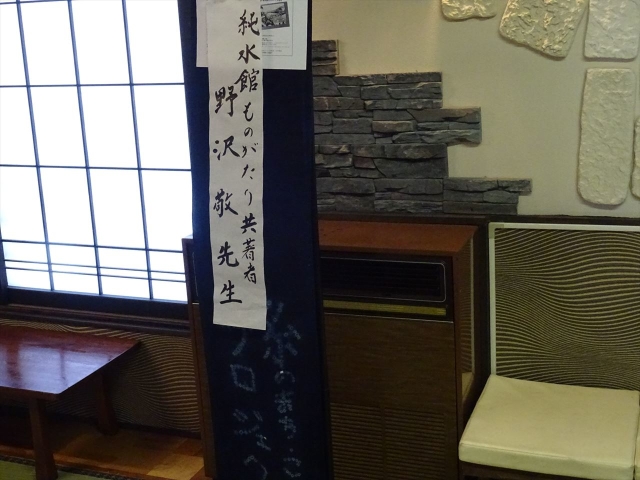 純水館ものがたり共著者
野沢敬先生
糸のまち・こ
プロジェク